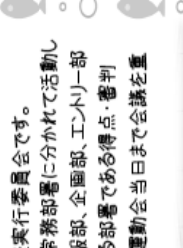 実行委員会です。
常務部署に分かれて活動し
版部、企画部、エントリー部
る部署である得点・審判
運動会当日まで会議を重